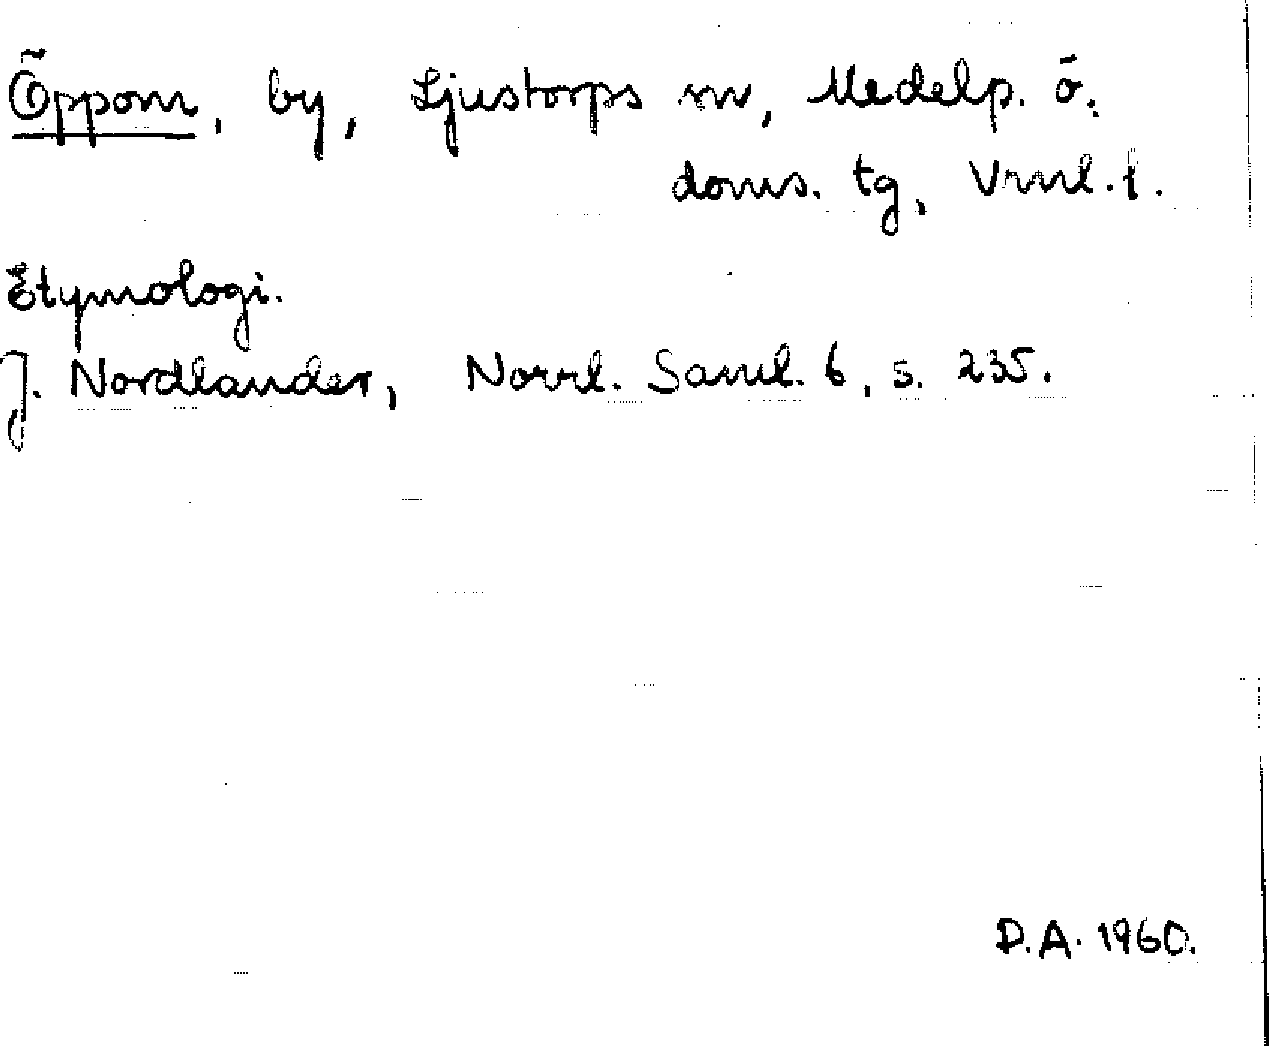 Öppom, by, Ljustorps sn, Medelp. ö.
doms. tg, Vrnl. l.
Etymologi.
J. Nordlander, Norrl. Saml. 6, s. 235.
D.A. 1960.